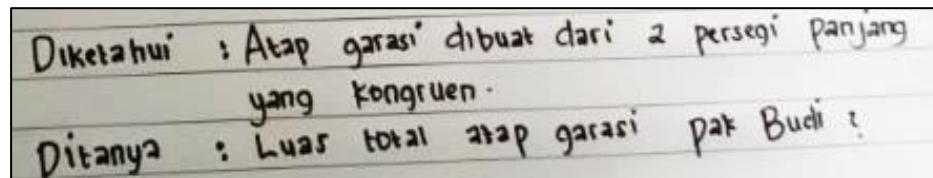 Diketahui : Atap garasi dibuat dari 2 persegi panjang
yang kongruen.
Ditanya : Luas total atap garasi pak Budi ?